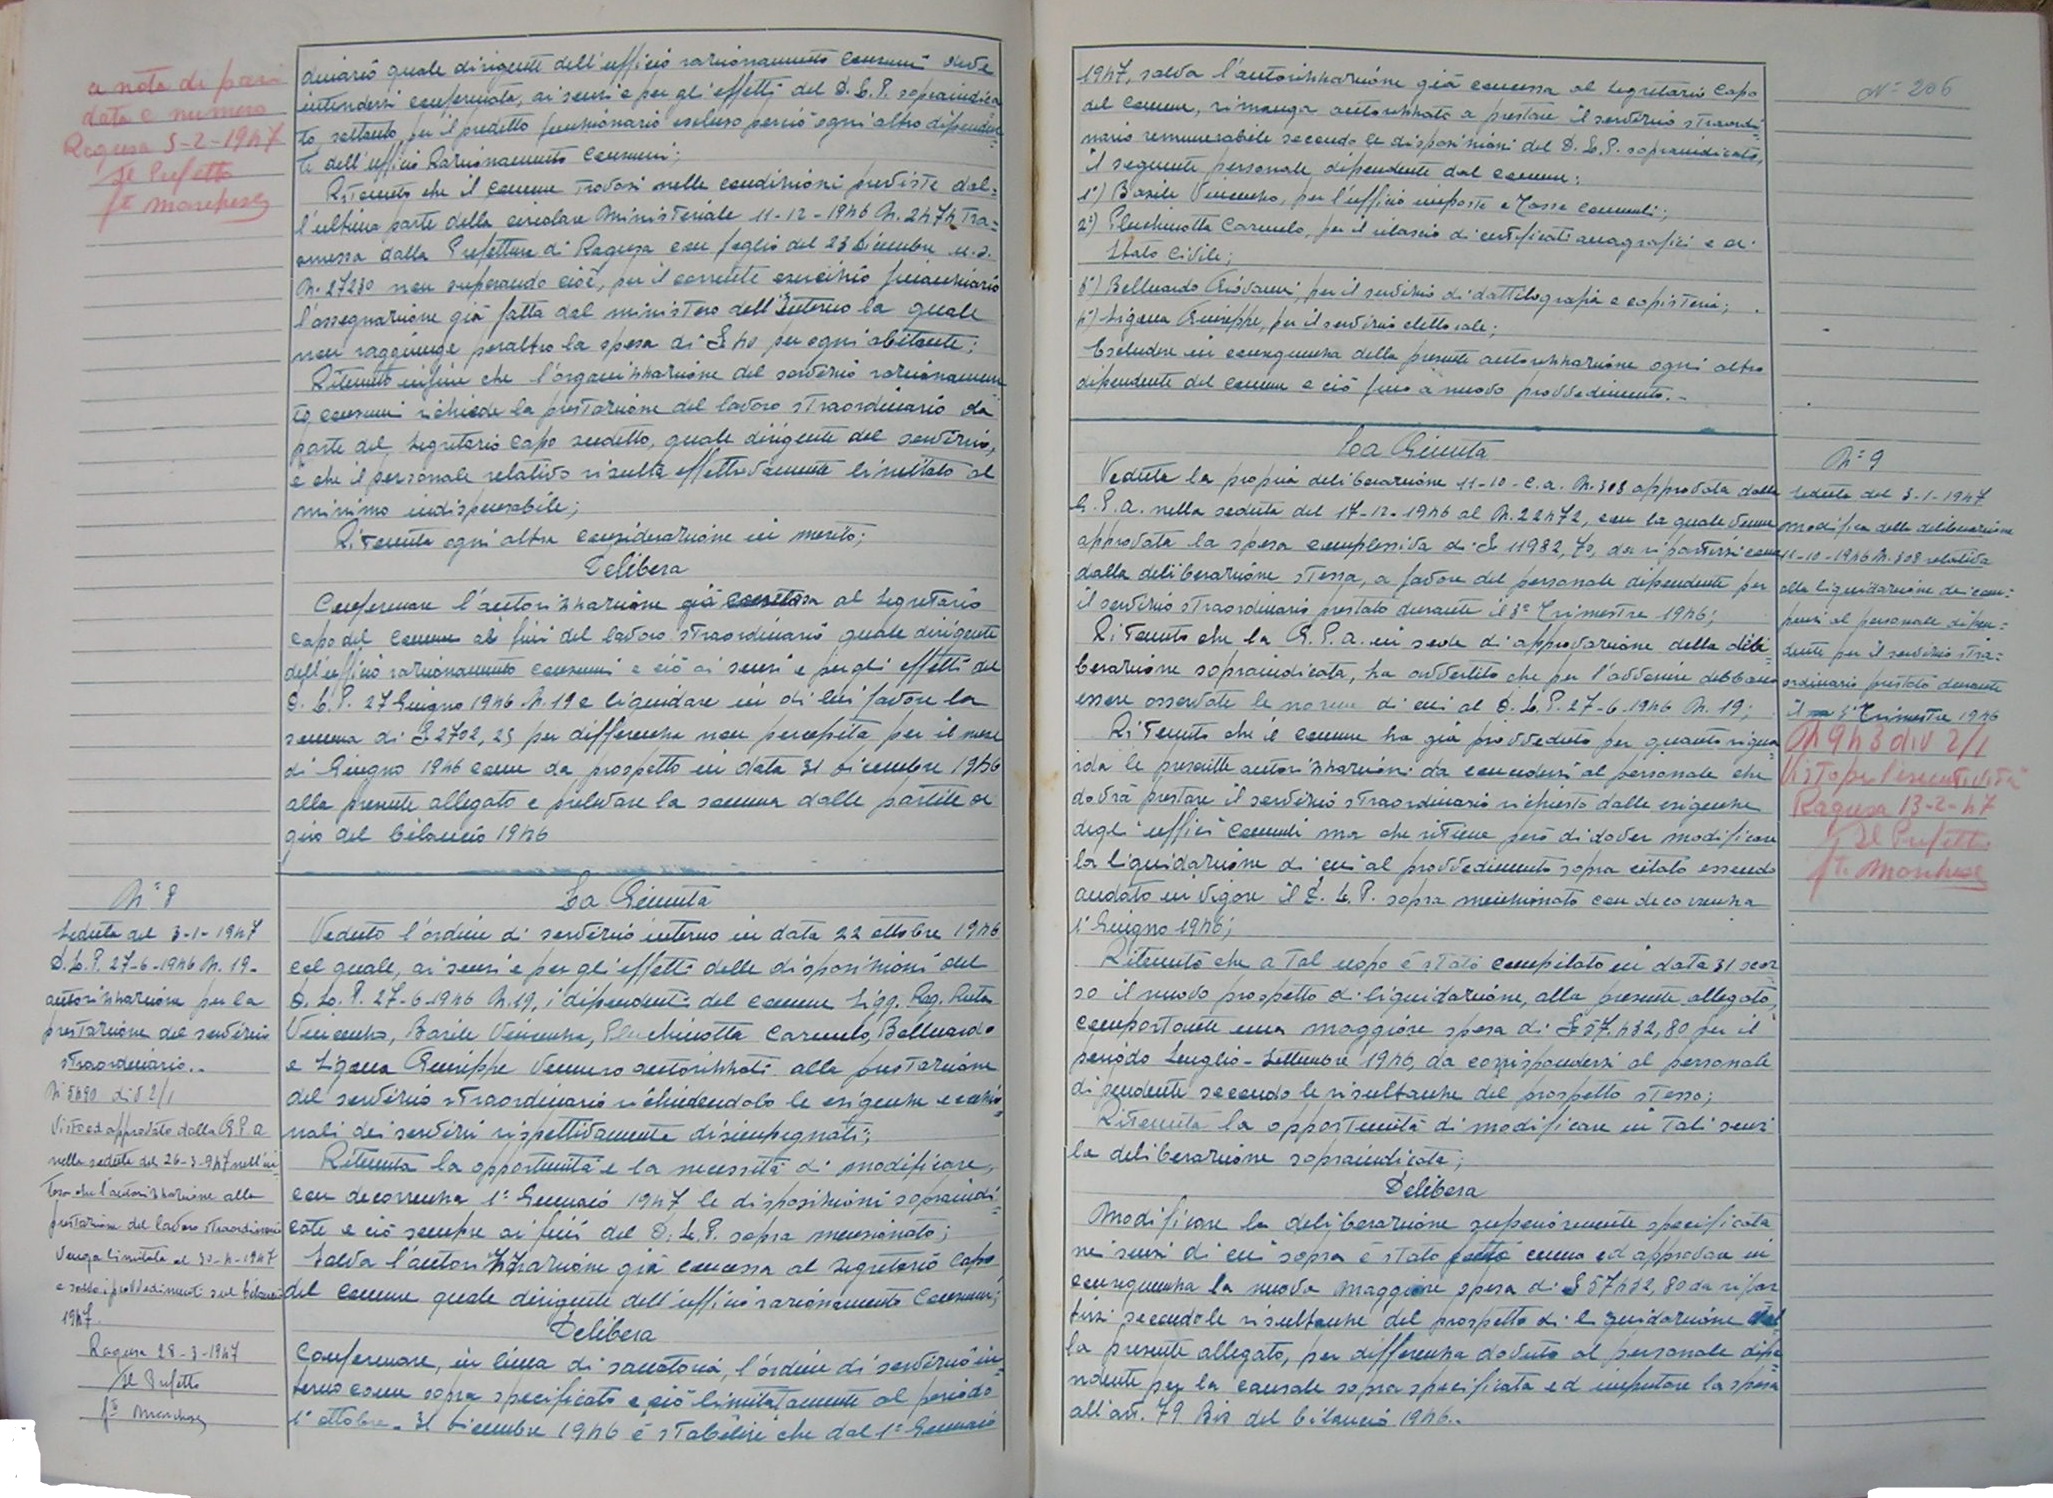 a nota di pari
data e numero
Ragusa 5-2-1947
Il Prefetto
fto Marchese
dinario quale dirigente dell'ufficio razionamento consumi deve
intendersi confermata, ai sensi e per gli effetti del D.L.P. sopraindica
to, soltanto per il predetto funzionario escluso perciò ogni altro dipenden=
te dell'ufficio Razionamento Consumi;
Ritenuto che il Comune trovasi nelle condizioni previste dal=
l'ultima parte della circolare Ministeriale 11-12-1946 N. 2474 tra=
smessa dalla Prefettura di Ragusa con foglio del 23 Dicembre u.s.
N. 27230 non superando cioè, per il corrente esercizio finanziario
l'assegnazione già fatta dal ministero dell'Interno la quale
non raggiunge peraltro la spesa di £ 40 per ogni abitante;
Ritenuto infine che l'organizzazione del servizio razionamen
to consumi richiede la prestazione del lavoro straordinario da
parte del Segretario Capo suddetto, quale dirigente del servizio,
e che il personale relativo risulta effettivamente limitato al
minimo indispensabile;
Ritenuta ogni altra considerazione in merito;
Delibera
Confermare l'autorizzazione già concessa al Segretario
Capo del Comune ai fini del lavoro straordinario quale dirigente
dell'ufficio razionamento consumi e ciò ai sensi e per gli effetti del
D.L.P. 27 Giugno 1946 N. 19 e liquidare in di lui favore la
somma di £ 2702,25 per differenza non percepita per il mese
di Giugno 1946 come da prospetto in data 31 Dicembre 1946
alla presente allegato e prelevare la somma dalle partite di
giro del bilancio 1946
N° 8
Seduta del 3-1-1947
D.L.P. 27-6-1946 N. 19-
autorizzazione per la
prestazione del servizio
straordinario..
N 5490 div 2/1
Visto ed approvato dalla G.P.A
nella seduta del 26-3-947 nell'in=
teso che l'autorizzazione alla
prestazione del lavoro straordinario
venga limitata al 30-4-1947
e salvo i provvedimenti sul bilancio
1947.
Ragusa 28-3-1947
Il Prefetto
fto Marchese
La Giunta
Veduto l'ordine di servizio interno in data 22 ottobre 1946
col quale, ai sensi e per gli effetti delle disposizioni del
D.L.P. 27-6-1946 N. 19, i dipendenti del Comune Sigg. Rag.
Vincenzo, Basile Vincenzo, Pluchinotta Carmelo, Belluardo
e Ligama Giuseppe vennero autorizzati alla prestazione
del servizio straordinario richiedendolo le esigenze eccezio=
nali dei servizi rispettivamente disimpegnati;
Ritenuta la opportunità e la necessità di modificare,
con decorrenza 1° Gennaio 1947 le disposizioni sopraindi=
cate e ciò sempre ai fini del D.L.P. sopra menzionato;
Salva l'autorizzazione già concessa al Segretario Capo
del Comune quale dirigente dell'ufficio razionamento Consumi;
Delibera
Confermare, in linea di sanatoria, l'ordine di servizio in=
terno come sopra specificato e ciò limitatamente al periodo
1° ottobre - 31 Dicembre 1946 e stabilire che dal 1° Gennaio
N° 206
1947, salva l'autorizzazione già concessa al Segretario Capo
del Comune, rimanga autorizzato a prestare il servizio straordi=
nario remunerabile secondo le disposizioni del D.L.P. sopraindicato,
il seguente personale dipendente dal Comune:
1°) Basile Vincenzo, per l'ufficio imposte e Tasse Comunali;
2°) Pluchinotta Carmelo, per il rilascio di certificati anagrafici e di
Stato Civile;
3°) Belluardo Giovanni, per il servizio di dattilografia e copisteria;
4°) Ligama Giuseppe, per il servizio elettorale;
Escludere in conseguenza della presente autorizzazione ogni altro
dipendente del Comune e ciò fino a nuovo provvedimento.-
La Giunta
Veduta la propria deliberazione 11-10-c.a. N. 308 approvata dalla
G.P.A. nella seduta del 17-12-1946 al N. 22472, con la quale venne
approvata la spesa complessiva di £ 11982,70, da ripartirsi come
dalla deliberazione stessa, a favore del personale dipendente per
il servizio straordinario prestato durante il 3° Trimestre 1946;
Ritenuto che la G.P.A. in sede di approvazione della deli
berazione sopraindicata, ha avvertito che per l'avvenire debbano
essere osservate le norme di cui al D.L.P. 27-6-1946 N. 19;
Ritenuto che il Comune ha già provveduto per quanto rigua
rda le prescritte autorizzazioni da concedersi al personale che
dovrà prestare il servizio straordinario richiesto dalle esigenze
degli uffici Comunali ma che ritiene però di dover modificare
la liquidazione di cui al provvedimento sopra citato essendo
andato in vigore il D.L.P. sopra menzionato con decorrenza
1° Giugno 1946;
Ritenuto che a tal uopo è stato compilato in data 31 scor
so il nuovo prospetto di liquidazione, alla presente allegato,
comportante una maggiore spesa di £ 57.432,80 per il
periodo Luglio-Settembre 1946, da corrispondersi al personale
dipendente secondo le risultanze del prospetto stesso;
Ritenuta la opportunità di modificare in tali sensi
la deliberazione sopraindicata;
Delibera
Modificare la deliberazione superiormente specificata
nei sensi di cui sopra è stato fatto cenno ed approvare in
conseguenza la nuova maggiore spesa di £ 57432,80 da ripar
tirsi secondo le risultanze del prospetto di liquidazione al
la presente allegato, per differenza dovuta al personale dipe
ndente per la causale sopra specificata ed imputare la spesa
all'art. 79 Bis del bilancio 1946..
N° 9
Seduta del 3-1-1947
Modifica della deliberazione
11-10-1946 N. 308 relativa
alla liquidazione dei com=
pensi al personale dipen=
dente per il servizio stra=
ordinario prestato durante
il 3° Trimestre 1946
N 943 div 2/1
Visto per l'esecutività
Ragusa 13-2-47
Il Prefetto
fto Marchese